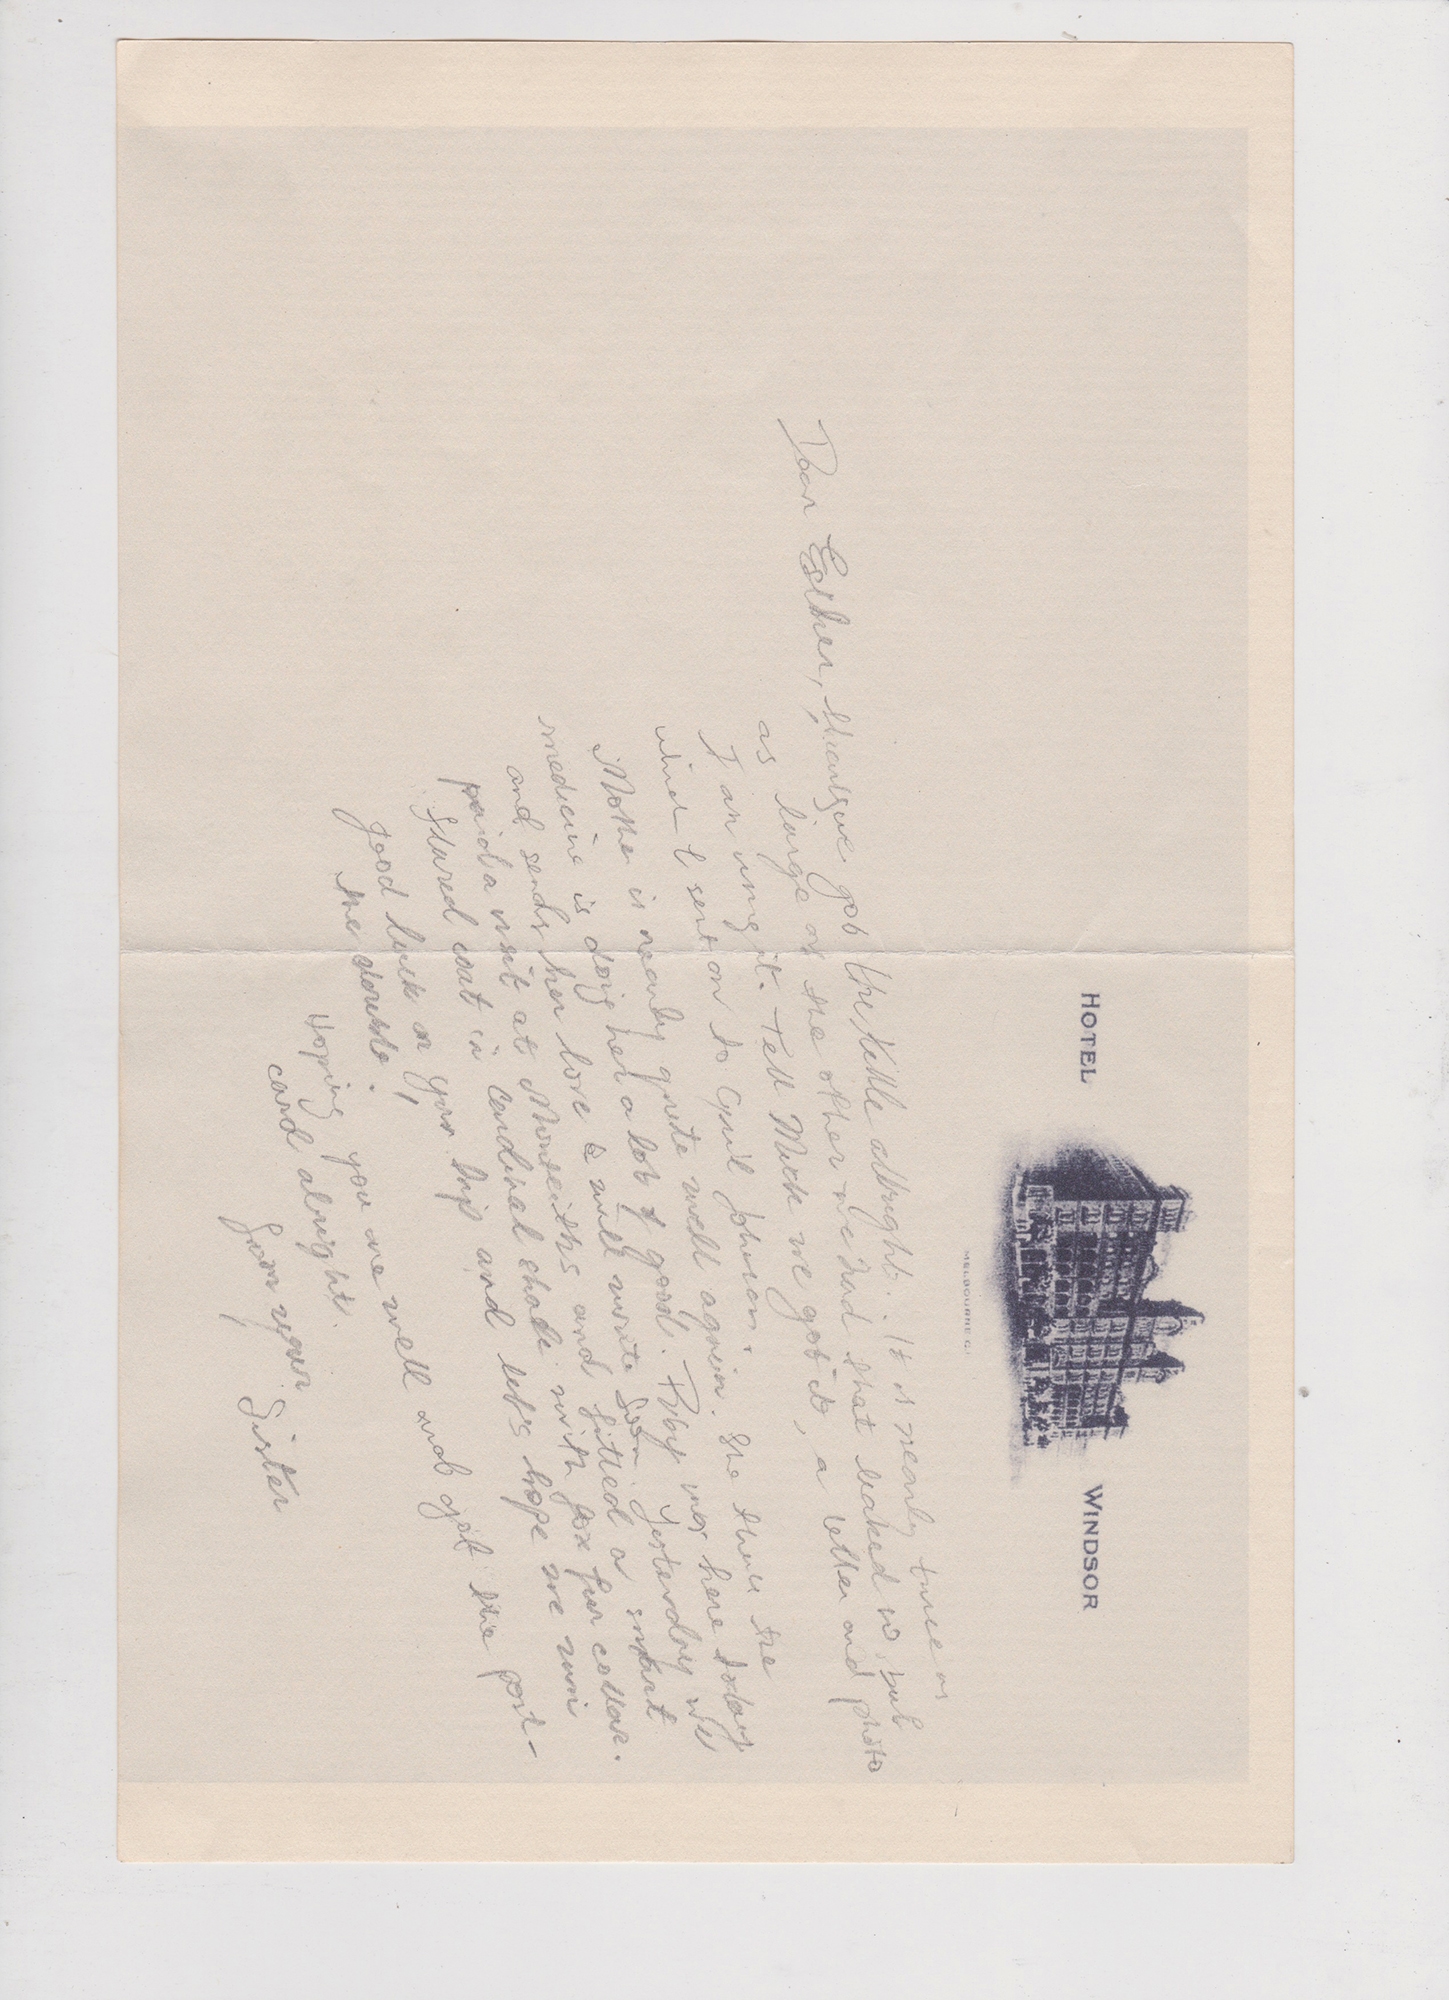 HOTEL WINDSOR
MELBOURNE C.1
Dear Esther, got the kettle allright. It is nearly twice as
as large as the other we had that leaked w
I am using it. Tell Mick we got it, a letter and photo
which I sent on to Johnson.
Mother is nearly quite well again. She the
medicine is doing her a lot of good. was here today
and sends her love & will write soon. Yesterday we
paid a visit at Monteiths and fitted a smart
flared coat in cardinal shade with fox fur collar.
Good luck on your trip and let's hope we win
the double.
Hoping you are well and got the post-
card alright.
from your Sister